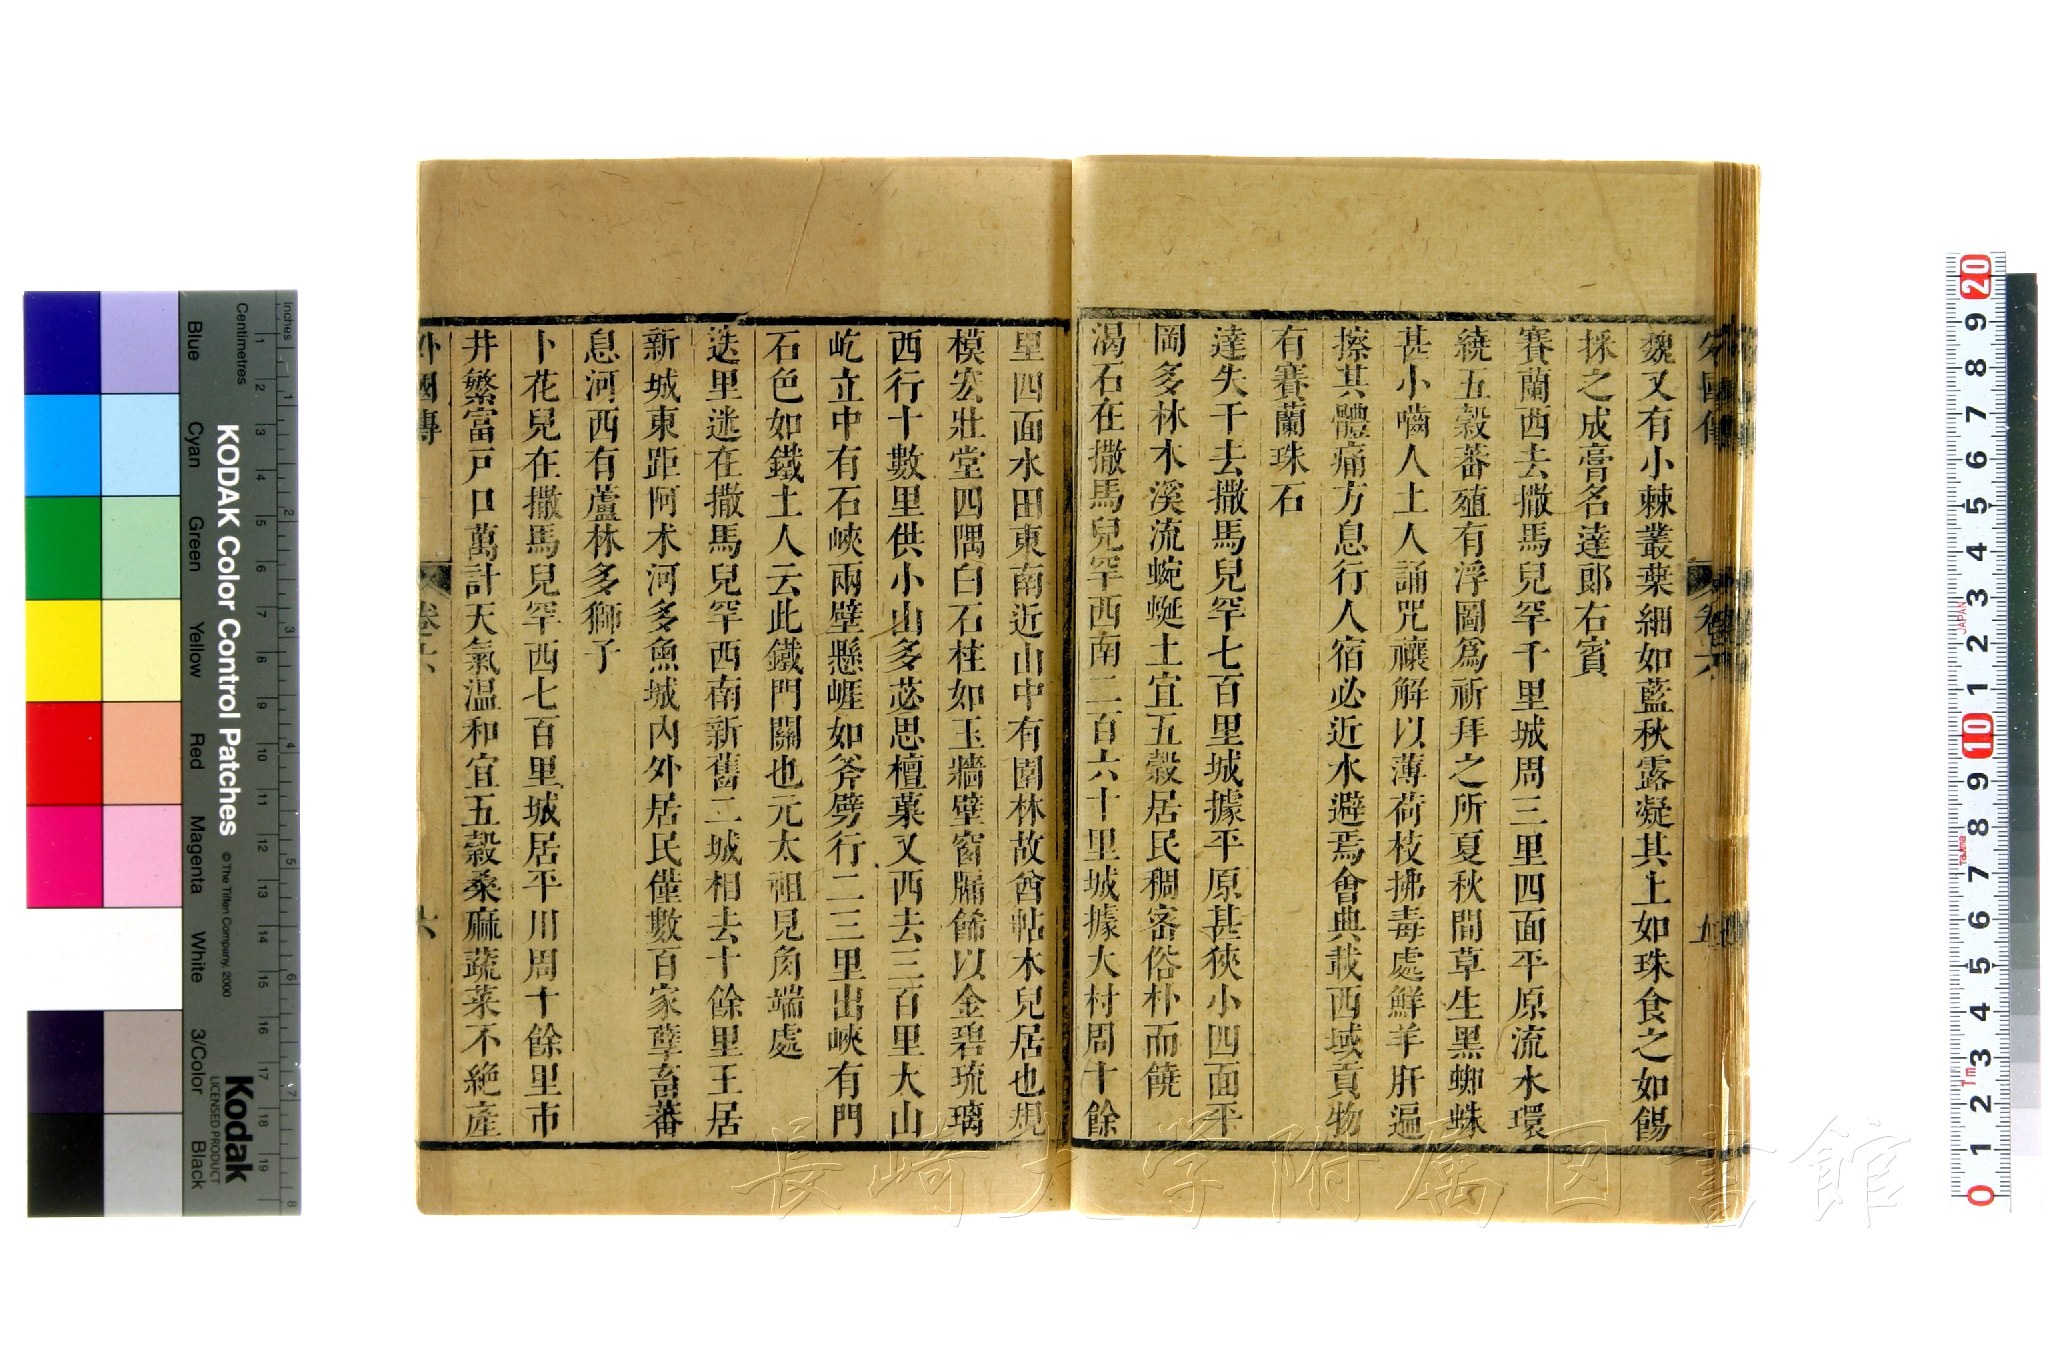 魏又有小棘叢葉細如藍秋露凝其上如珠食之如餳
採之成膏名達郎右賓
賽蘭西去撒馬兒罕千里城周三里四面平原流水環
繞五穀蕃殖有浮圖爲祈拜之所夏秋間草生黑蜘蛛
甚小嚙人土人誦咒禳解以薄荷枝拂毒處鮮羊肝遍
擦其體痛方息行人宿必近水避焉會典載西域貢物
有賽蘭珠石
達失干去撒馬兒罕七百里城據平原甚狹小四面平
岡多林木溪流蜿蜒土宜五穀居民稠密俗朴而饒
渴石在撒馬兒罕西南二百六十里城據大村周十餘
里四面水田東南近山中有園林故酋帖木兒居也規
模宏壯堂四隅白石柱如玉牆壁窗牖飾以金碧琉璃
西行十數里供小山多苾思檀菓又西去三百里大山
屹立中有石峽兩壁懸崕如斧劈行二三里出峽有門
石色如鐵土人云此鐵門關也元太祖見角端處
迭里迷在撒馬兒罕西南新舊二城相去十餘里王居
新城東距阿术河多魚城內外居民僅數百家孽畜蕃
息河西有蘆林多獅子
卜花兒在撒馬兒罕西七百里城居平川周十餘里市
井繁富戸口萬計天氣溫和宜五穀桑麻蔬菜不絶產
外國傳
卷六
六
長崎大学附属図書館
KODAK Color Control Patches
© The Tiffen Company, 2000
Kodak
LICENSED PRODUCT
Inches
Centimetres
Blue
Cyan
Green
Yellow
Red
Magenta
White
3/Color
Black
1 2 3 4 5 6 7 8 9 10 11 12 13 14 15 16 17 18 19
1 2 3 4 5 6 7 8
20 9 8 7 6 5 4 3 2 1 10 9 8 7 6 5 4 3 2 1 0
JAPAN
Tajima
1m